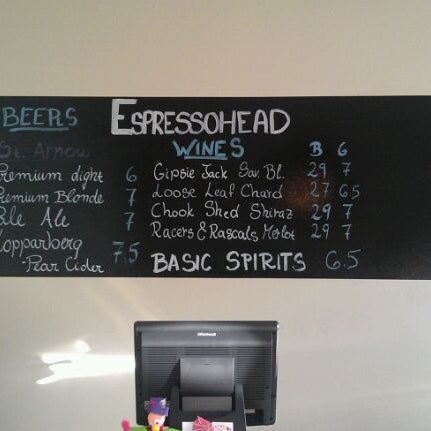 ESPRESSOHEAD
BEERS
St. Arnou
Premium Light 6
Premium Blonde 7
Pale Ale 7
Kopparberg
-Pear Cider 7.5
WINES B G
Gipsie Jack Sav Bl. 29 7
Loose Leaf Chard 27 6.5
Chook Shed Shiraz 29 7
Racers & Rascals Merlot 29 7
BASIC SPIRITS 6.5